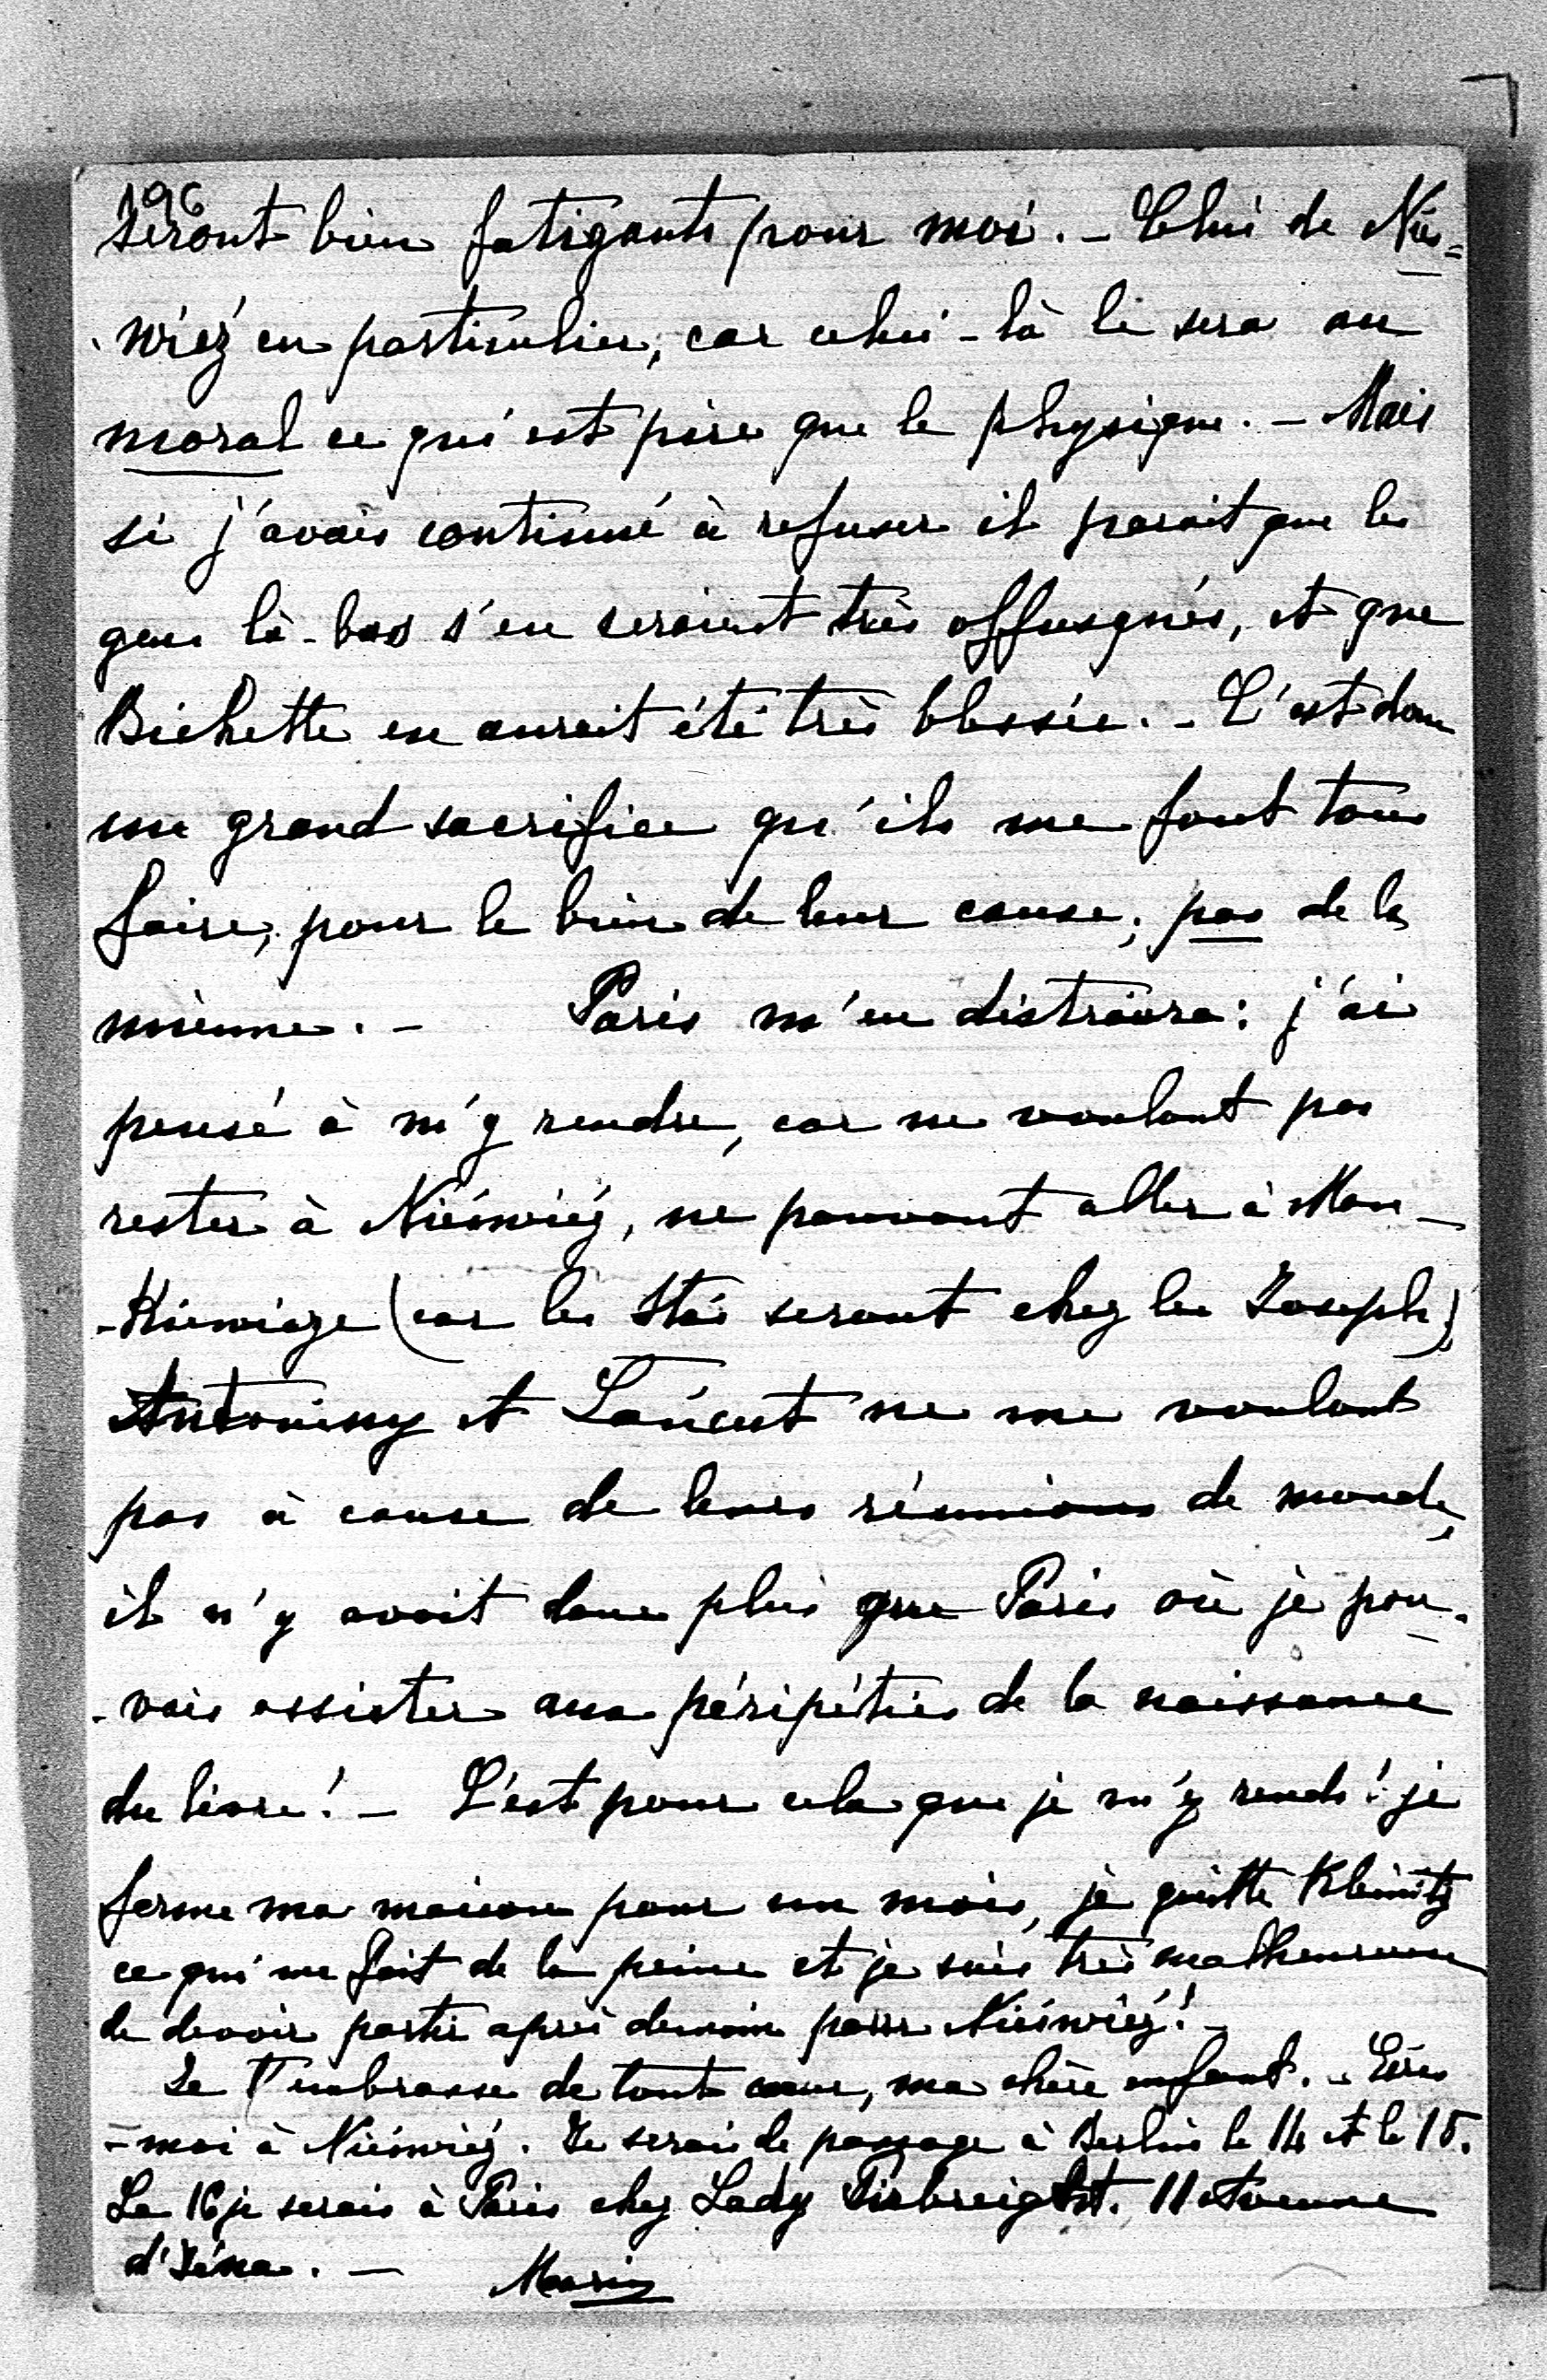 196
seront bien fatigants pour moi. - Celui de Nies=
wiéz en particulier, car celui-là le sera au
moral ce qui est pire que le physique. - Mais
si j'avais continué à refuser il parait que les
gens là-bas s'en seraient très offusqués, et que
Bichette en aurait été très blessée. - C'est donc
un grand sacrifice qu'ils me font tous
faire, pour le bien de leur cause, pas de la
mienne. - Paris m'en distraira: j'ai
pensé à m'y rendre, car ne voulant pas
rester à Niéswiéz, ne pouvant aller à Man-
-Kiewicze (car les Stas seront chez les Joseph)
Antoniny et Łańcut ne me voulant
pas à cause de leurs réunions de monde,
il n'y avait donc plus que Paris où je pou-
-vais assister aux péripéties de la naissance
du livre! - C'est pour cela que je m'y rends! je
ferme ma maison pour un mois, je quitte Kleinitz
ce qui me fait de la peine et je suis très malheureuse
de devoir partir après demain pour Niéswiéz! -
Je t'embrasse de tout cœur, ma chère enfant. - Écris
-moi à Niéswiéz. Je serai de passage à Berlin le 14 et le 15.
Le 16 je serais à Paris chez Lady Pirbreight. 11 Avenue
d'Iéna. - Marie